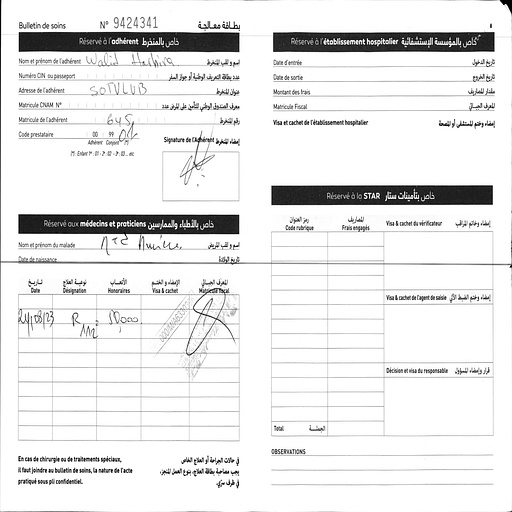 Bulletin de soins N° 9424341 بطاقة معالجة
Réservé à l'adhérent خاص بالمنخرط
Nom et prénom de l'adhérent Walid اسم و لقب المنخرط
Numéro CIN ou passeport عدد بطاقة التعريف الوطنية أو جواز السفر
Adresse de l'adhérent SOTULUB عنوان المنخرط
Matricule CNAM N° معرف الصندوق الوطني للتأمين على المرض عدد
Matricule de l'adhérent 645 رقم المنخرط
Code prestataire 00 99
Adhérent Conjoint (*)
(*). Enfant 1er : 01 - 2e : 02 - 3e : 03 ... etc
Signature de l'Adhérent إمضاء المنخرط
Réservé aux médecins et praticiens خاص بالأطباء والممارسين
Nom et prénom du malade اسم و لقب المريض
Date de naissance تاريخ الولادة
تاريخ نوعية العلاج الأتعاب الإمضاء و الختم المعرف الجبائي
Date Désignation Honoraires Visa & cachet Matricule fiscal
En cas de chirurgie ou de traitements spéciaux,
il faut joindre au bulletin de soins, la nature de l'acte
pratiqué sous pli confidentiel.
في حالات الجراحة أو العلاج الخاص
يجب مصاحبة بطاقة العلاج، بنوع العمل المنجز،
في ظرف سري.
Réservé à l'établissement hospitalier خاص بالمؤسسة الإستشفائية
Date d'entrée تاريخ الدخول
Date de sortie تاريخ الخروج
Montant des frais مقدار المصاريف
Matricule Fiscal المعرف الجبائي
Visa et cachet de l'établissement hospitalier إمضاء وختم المستشفى أو المصحة
Réservé à la STAR خاص بتأمينات ستار
رمز العنوان المصاريف
Code rubrique Frais engagés
Visa & cachet du vérificateur إمضاء وخاتم المراقب
Visa & cachet de l'agent de saisie
Décision et visa du responsable قرار وإمضاء المسؤول
Total الجملة
OBSERVATIONS